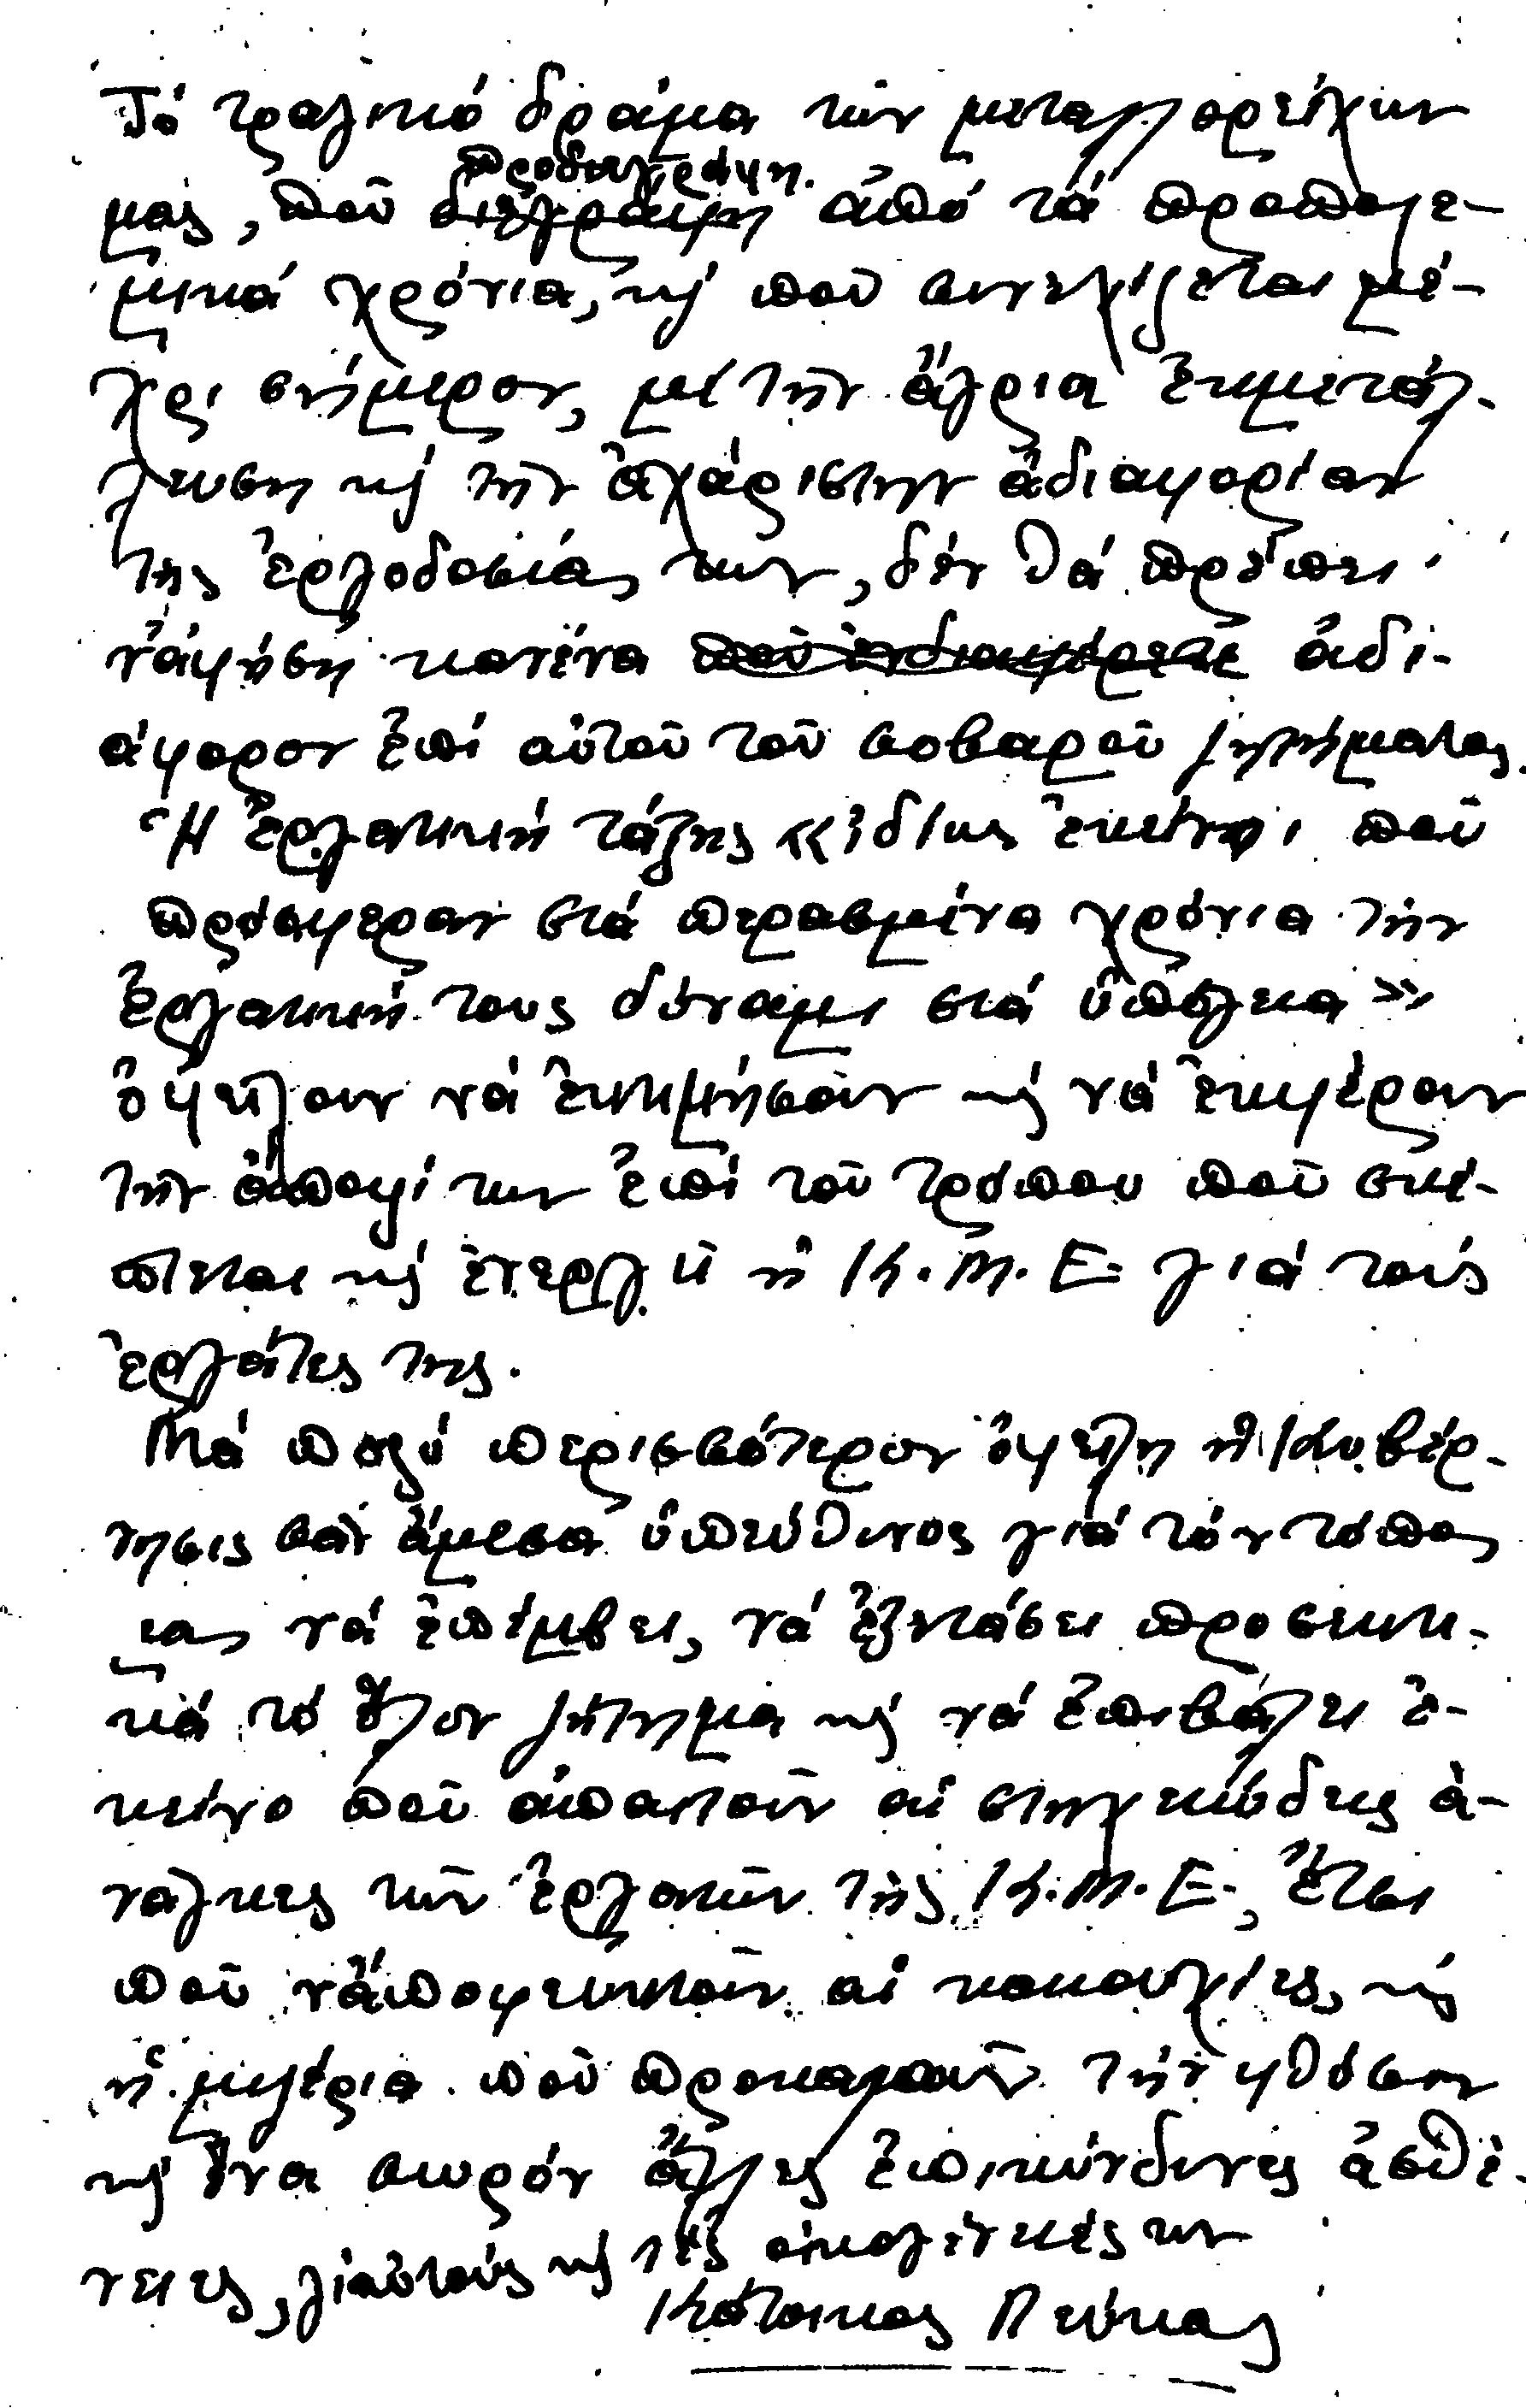 Τό τραγικό δρᾶμα τῶν μεταλλορύχων
προδιεγράφη.
μας, ποῦ διεγράφη ἀπό τά προπολε-
μικά χρόνια, κ' ποῦ συνεχίζεται μέ-
χρι σήμερον, μέ τήν ἄγρια ἐκμετάλ-
λευση κ' τήν ἀχάριστην ἀδιαφορίαν
τῆς ἐργοδοσίας των, δέν θά πρέπει
νἀφήση κανένα ποῦ ἐνδιαφέρετε ἀδι-
άφορον ἐπί αὐτοῦ τοῦ σοβαροῦ ζητήματος.
Ἡ ἐργατική τάξης «ἰδίως ἐκεῖνοι ποῦ
πρόσφεραν στά περασμένα χρόνια τήν
ἐργατική τους δύναμι στά ὑπόγεια»
ὀφείλουν νά ἐκτιμήσουν κ' νά ἐκφέρουν
τήν ἄποψί των ἐπί τοῦ τρόπου ποῦ σκέ-
πτεται κ' ἐνεργεῖ ἡ Κ.Μ.Ε. γιά τούς
ἐργάτες της.
Μά πολύ περισσότερον ὀφείλη ἡ Κυβέρ-
νησις σάν ἄμεσα ὑπεύθυνος γιά τόν τόπος
μας νά ἐπέμβει, νά ἐξετάσει προσεκτι-
κά τό ὅλον ζήτημα κ' νά ἐπιβάλει ἐ-
κεῖνο ποῦ ἀπαιτοῦν αἱ στοιχειώδεις ἀ-
νάγκες τῶν ἐργατῶν τῆς Κ.Μ.Ε., ἔτσι
ποῦ νἀποφευχθοῦν οἱ κακουχίες, κ'
ἡ μιζέρια ποῦ προκαλοῦν τήν φθίσιν
κ' ἕνα σωρόν ἄλλες ἐπικύνδινες ἀσθέ-
νειες, γι' αὐτούς κ' τές οἰκογένειές των
Κάτοικος Πεύκας